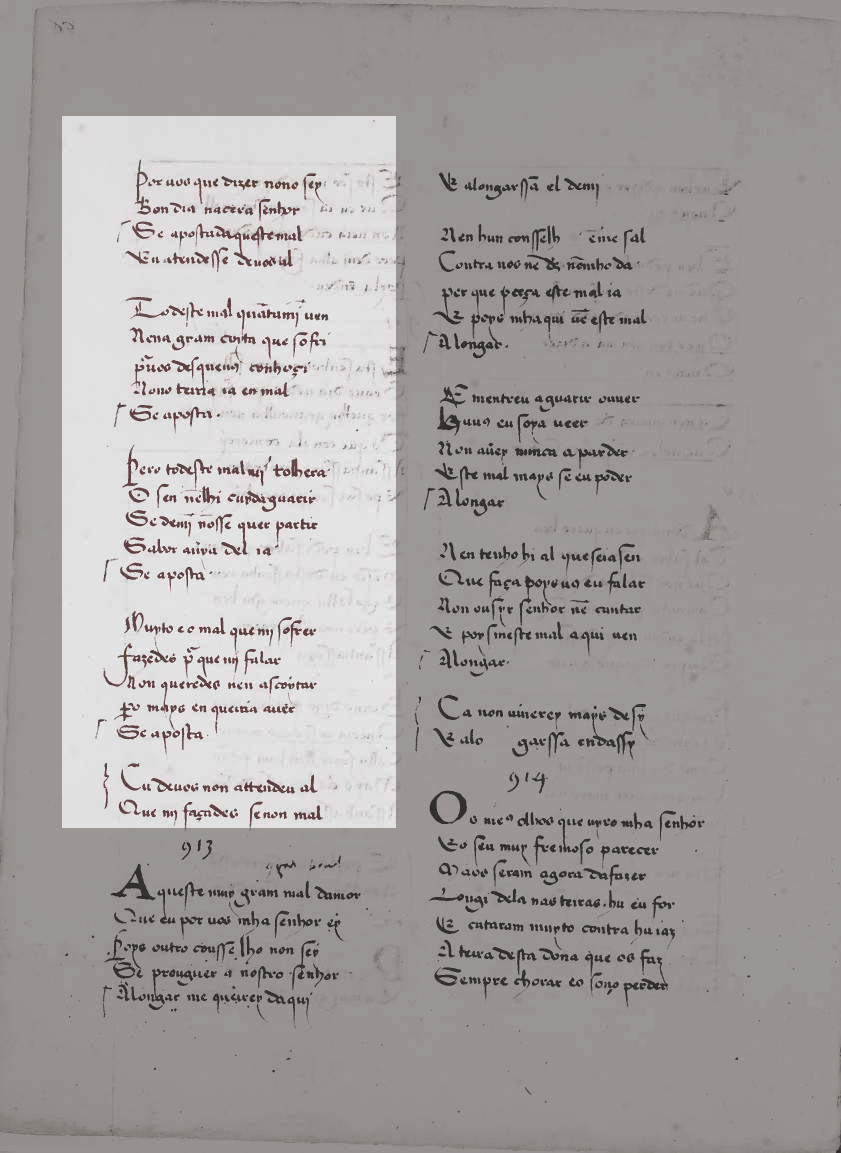 Por uos que dizer nono sey
Bon dia nacera senhor
Se aposta daqueste mal
Eu atendesse de uos al
Todeste mal quātami uen
Nena gram coyta que sofri
pͬuos des queuꝯ conhoçi
Nono terria ia en mal
Se aposta.
Pero todeste mal mi tolhera
O sen nēlhi cuydaguarir
Se demī nōsse quer partir
Sabor auͥya del ia
Se aposta
Muyto e o mal que mi sofrer
fazedes pͬ que mi falar
Non queredes nen ascoytar
ꝑo mays en queiria auer
Se aposta.
Eu deuos non attendeu al
Que mi façades senon mal
913
A queste muy gram mal damor
Que eu por uos mha senhor ey
Poys outro cousselho non sey
Se prouguer a nostro senhor
Alongar me queirey daqui
E alongarssā el demi
Nen hun consselh ēme fal
Contra uos nē ds nōmho da
per que perça este mal ia
E poys mhaqui uē este mal
Alongar.
E mentreu aguarir ouuer
Huuꝯ eu soya ueer
Non aūey nūnca a parder
Este mal mays se eu poder
Alongar
Nen tenho hi al que seia sen
Que faça poys uꝯ eu falar
Non ousyr senhor nē cantar
E poysmeste mal aqui uen
Alongar.
Ca non uiuerey mays desy
E alo garssa endassy
914
Os meꝯ olhos que uyro mha senhor
Eo seu muy fremoso parecer
Maos seram agora dafazer
Longi dela nas teiras. hu eu for
E cataram muyto contra hu iaz
A teira desta dona que os faz
Sempre chorar eo sono perder